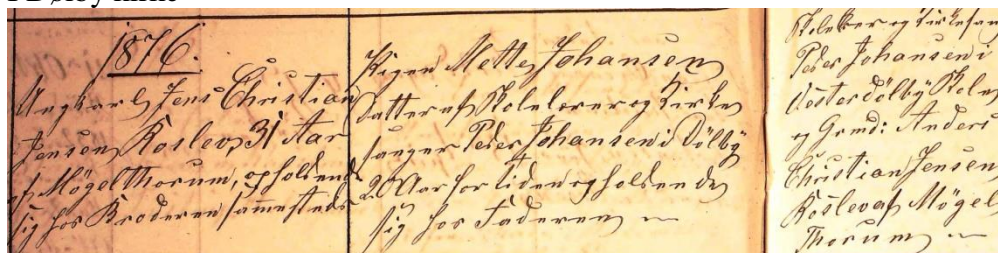 I Dølby kirke
1876.
Ungkarl Jens Christian
Jensen Koslev, 31 Aar
af Mögelthorum, opholdende
sig hos Broderen sammesteds
Pigen Mette Johansen
Datter af Skolelærer og Kirke
sanger Peder Johansen i Dölby
20 Aar for tiden opholdende
sig hos Faderen
Skolelærer og Kirkesan
Peder Johansen i
Vesterdölby Skole
og Grmd: Anders
Christian Jensen
Koslev af Mögel
Thorum